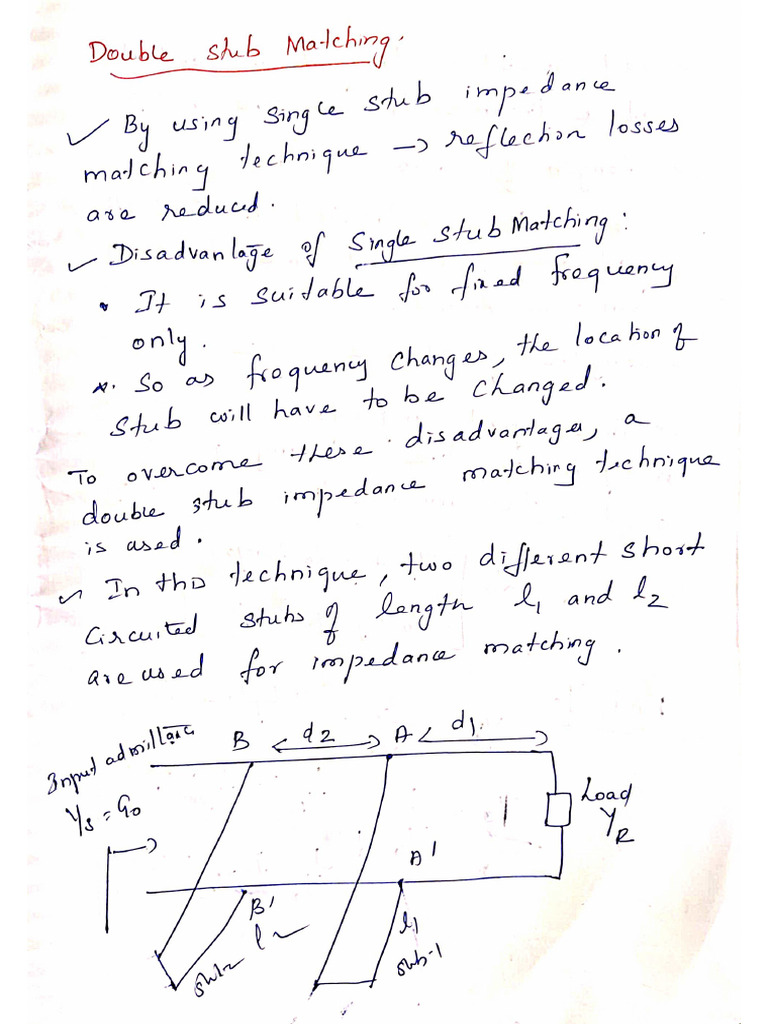 Double stub Matching.
By using single stub impedance
matching technique → reflection losses
are reduced.
Disadvantage of Single stub Matching:
• It is suitable for fixed frequency
only.
So as frequency changes, the location of
stub will have to be changed.
To overcome these disadvantages, a
double stub impedance matching technique
is used.
In this technique, two different short
circuited stubs of length l1 and l2
are used for impedance matching.
Input admittance
B d2 A d1
Ys = G0
Load
YR
A'
B'
l2
l1
stub-2
stub-1